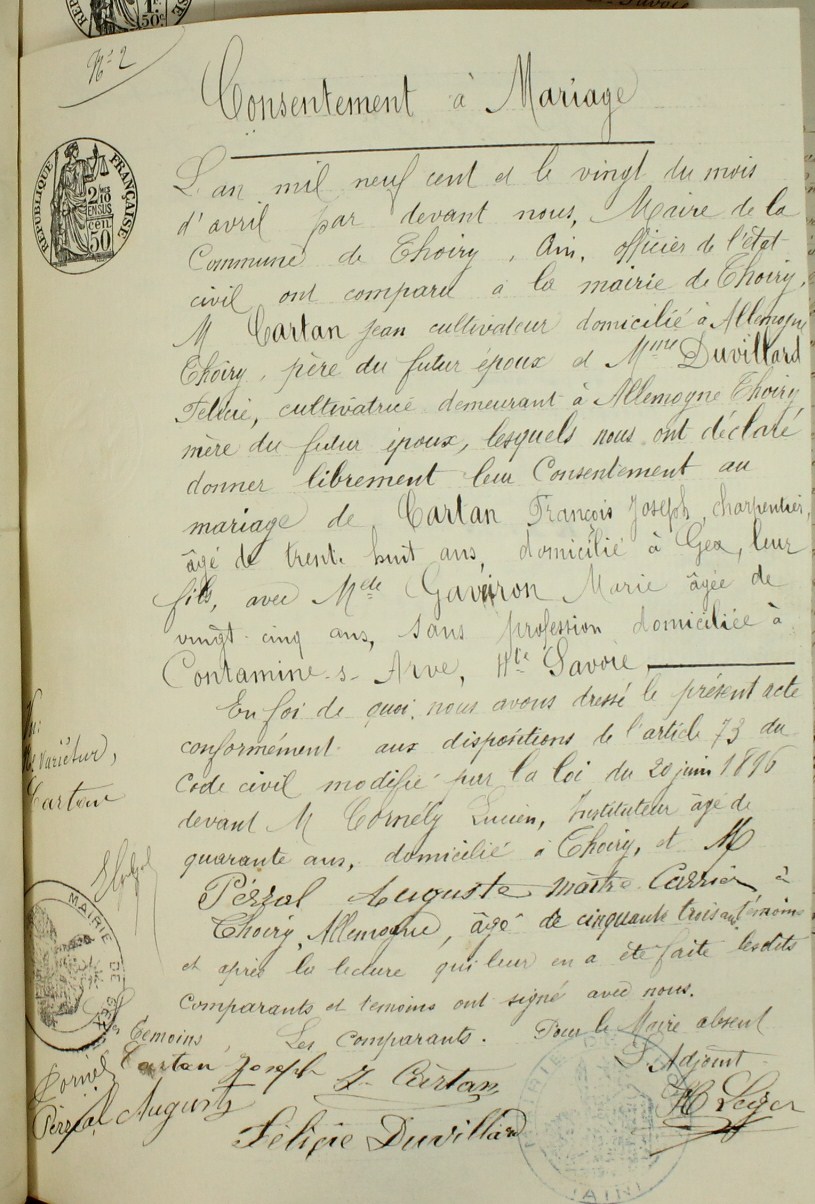 Nº 2
Consentement à Mariage
RÉPUBLIQUE FRANÇAISE
2/10 EN SUS
50 cen
L'an mil neuf cent et le vingt du mois
d'avril par devant nous, Maire de la
Commune de Thoiry, Ain, officier de l'état
civil ont comparu à la mairie de Thoiry,
M Cartan Jean cultivateur domicilié à Allemogne
Thoiry, père du futur époux et Mme Duvillard
Félicie, cultivatrice demeurant à Allemogne Thoiry
mère du futur époux, lesquels nous ont déclaré
donner librement leur Consentement au
mariage de Cartan François Joseph, charpentier,
âgé de trente huit ans, domicilié à Gex, leur
fils, avec Melle Gaveiron Marie âgée de
vingt-cinq ans, sans profession domiciliée à
Contamine-s-Arve, Hte Savoie
En foi de quoi, nous avons dressé le présent acte
conformément aux dispositions de l'article 73 du
Code civil modifié par la loi du 20 juin 1896
devant M Cornély Lucien, Instituteur âgé de
quarante ans, domicilié à Thoiry, et M
Pérral Auguste maître Carrier à
Thoiry, Allemogne, âgé de cinquante trois ans témoins
et après la lecture qui leur en a été faite lesdits
comparants et témoins ont signé avec nous.
Ne Varietur,
Cartan
MAIRIE DE GEX
Témoins, Les Comparants. Pour le Maire absent
L'Adjoint
Cartan Joseph J. Cartan
Cornély
Pérral Auguste
Félicie Duvillard
MAIRIE DE
AIN